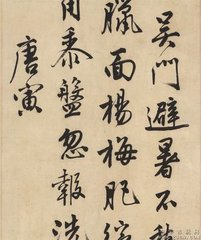 吴門避暑不
臘面楊梅肥
用黍盤忽報洗
唐寅